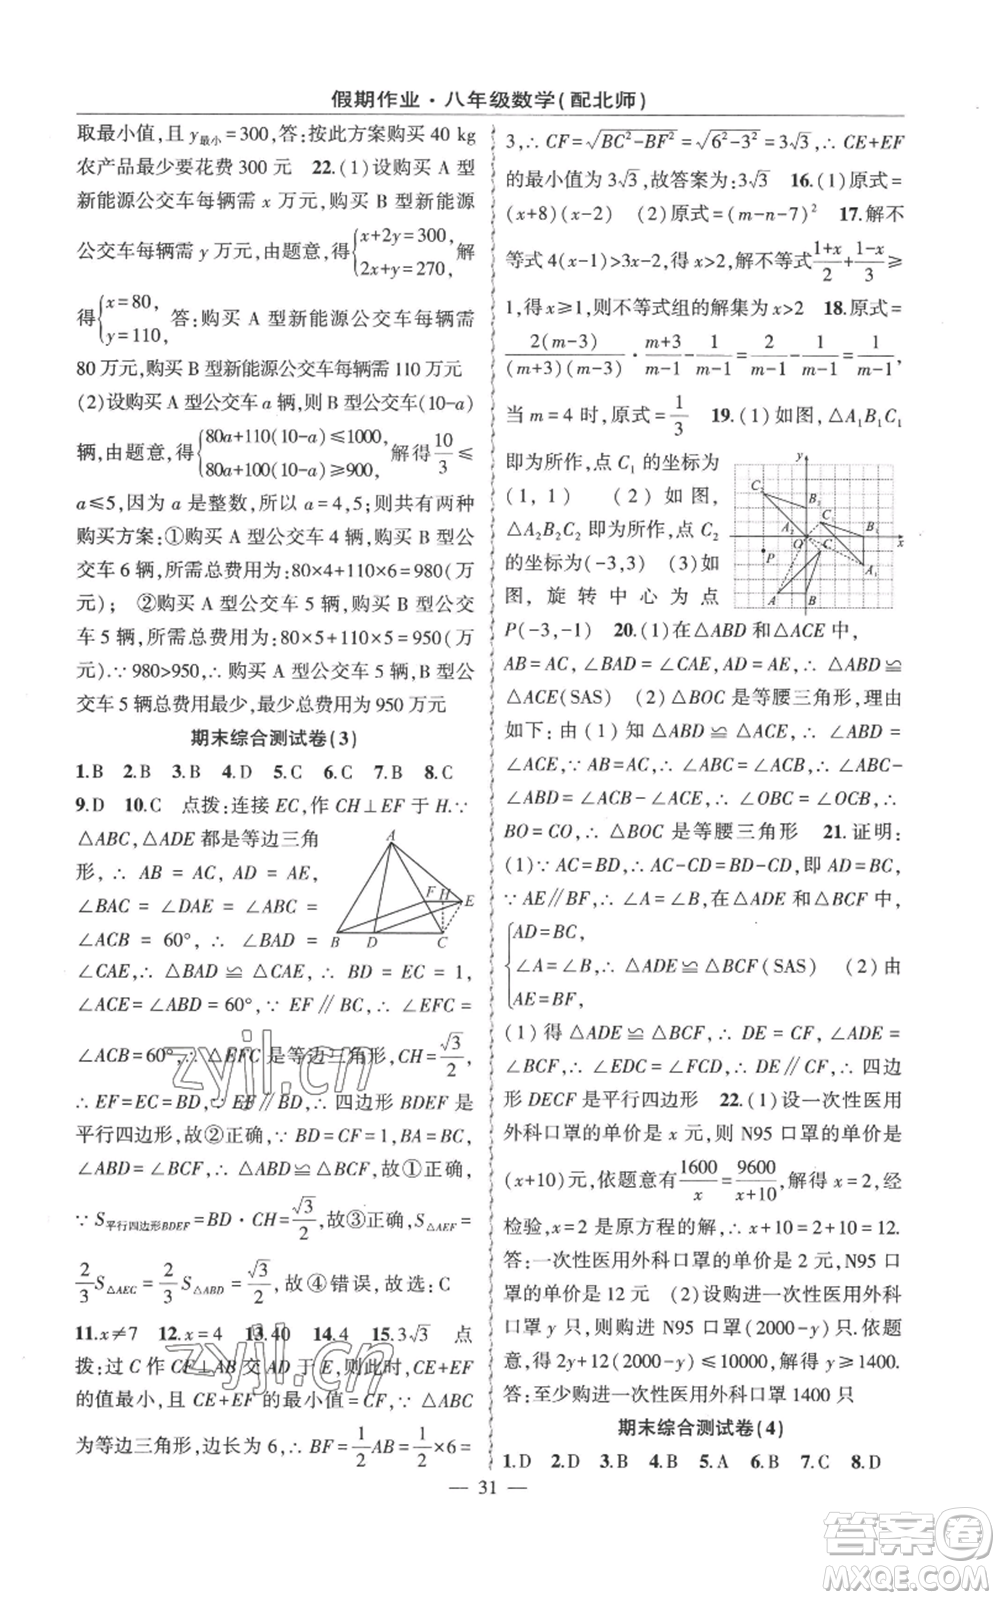 假期作业·八年级数学(配北师)
取最小值,且 y最小=300,答:按此方案购买 40 kg
农产品最少要花费 300 元　22.(1)设购买 A 型
新能源公交车每辆需 x 万元,购买 B 型新能源
公交车每辆需 y 万元,由题意,得{x+2y=300, 2x+y=270, 解
得{x=80, y=110, 答:购买 A 型新能源公交车每辆需
80 万元,购买 B 型新能源公交车每辆需 110 万元
(2)设购买 A 型公交车 a 辆,则 B 型公交车(10-a)
辆,由题意,得{80a+110(10-a)≤1000, 80a+100(10-a)≥900, 解得 10/3 ≤
a≤5,因为 a 是整数,所以 a=4,5;则共有两种
购买方案:①购买 A 型公交车 4 辆,购买 B 型公
交车 6 辆,所需总费用为:80×4+110×6=980(万
元);　②购买 A 型公交车 5 辆,购买 B 型公交
车 5 辆,所需总费用为:80×5+110×5=950(万
元).∵980>950,∴购买 A 型公交车 5 辆,B 型公交
车 5 辆总费用最少,最少总费用为 950 万元
期末综合测试卷(3)
1.B　2.B　3.B　4.D　5.C　6.C　7.B　8.C
9.D　10.C　点拨:连接 EC,作 CH⊥EF 于 H.∵
△ABC,△ADE 都是等边三角
形,∴ AB = AC, AD = AE,
∠BAC = ∠DAE = ∠ABC =
∠ACB = 60°,∴ ∠BAD =
∠CAE,∴ △BAD ≌ △CAE,∴ BD = EC = 1,
∠ACE=∠ABD=60°,∵ EF∥BC,∴ ∠EFC=
∠ACB=60°,∴△EFC 是等边三角形,CH=√3/2,
∴ EF=EC=BD,∵ EF∥BD,∴ 四边形 BDEF 是
平行四边形,故②正确,∵ BD=CF=1,BA=BC,
∠ABD=∠BCF,∴ △ABD≌△BCF,故①正确,
∵ S平行四边形BDEF=BD·CH=√3/2,故③正确,S△AEF=
2/3 S△AEC=2/3 S△ABD=√3/2,故④错误,故选:C
11.x≠7　12.x=4　13.40　14.4　15.3√3　点
拨:过 C 作 CF⊥AB 交 AD 于 E,则此时,CE+EF
的值最小,且 CE+EF 的最小值=CF,∵△ABC
为等边三角形,边长为 6,∴ BF=1/2 AB=1/2×6=
A
F
H
E
B
D
C
3,∴ CF=√BC²-BF²=√6²-3²=3√3,∴ CE+EF
的最小值为 3√3,故答案为:3√3　16.(1)原式=
(x+8)(x-2)　(2)原式=(m-n-7)²　17.解不
等式 4(x-1)>3x-2,得 x>2,解不等式 1+x/2+1-x/3≥
1,得 x≥1,则不等式组的解集为 x>2　18.原式=
2(m-3)/(m+3)(m-3)·m+3/m-1-1/m-1=2/m-1-1/m-1=1/m-1,
当 m=4 时,原式=1/3　19.(1)如图,△A₁B₁C₁
即为所作,点 C₁ 的坐标为
(1, 1)　(2)如图,
△A₂B₂C₂ 即为所作,点 C₂
的坐标为(-3,3)　(3)如
图,旋转中心为点
P(-3,-1)　20.(1)在△ABD 和△ACE 中,
AB=AC, ∠BAD=∠CAE,AD=AE,∴ △ABD ≌
△ACE(SAS)　(2)△BOC 是等腰三角形,理由
如下:由(1)知△ABD ≌ △ACE,∴ ∠ABD =
∠ACE,∵ AB=AC,∴ ∠ABC=∠ACB,∴ ∠ABC-
∠ABD=∠ACB-∠ACE,∴ ∠OBC=∠OCB,∴
BO=CO,∴ △BOC 是等腰三角形　21.证明:
(1)∵ AC=BD,∴ AC-CD=BD-CD,即 AD=BC,
∵ AE∥BF,∴ ∠A=∠B,在△ADE 和△BCF 中,
{AD=BC,
∠A=∠B,∴ △ADE≌△BCF(SAS)　(2)由
AE=BF,
(1)得△ADE≌△BCF,∴ DE=CF,∠ADE=
∠BCF,∴ ∠EDC=∠FCD,∴ DE∥CF,∴ 四边
形 DECF 是平行四边形　22.(1)设一次性医用
外科口罩的单价是 x 元,则 N95 口罩的单价是
(x+10)元,依题意有1600/x=9600/x+10,解得 x=2,经
检验,x=2 是原方程的解,∴ x+10=2+10=12.
答:一次性医用外科口罩的单价是 2 元,N95 口
罩的单价是 12 元　(2)设购进一次性医用外科
口罩 y 只,则购进 N95 口罩(2000-y)只,依题
意,得 2y+12(2000-y)≤10000,解得 y≥1400.
答:至少购进一次性医用外科口罩 1400 只
期末综合测试卷(4)
1.D　2.D　3.B　4.B　5.A　6.B　7.C　8.D
— 31 —
zyjl.cn
答案卷
MXQE.COM